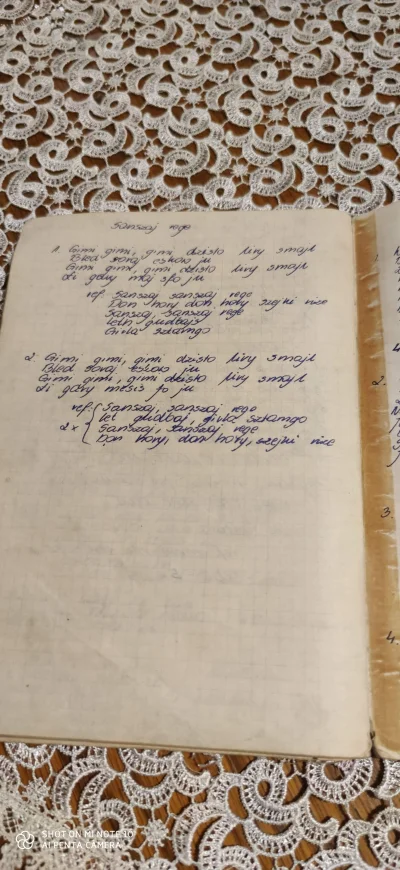 Sanszaj rege
1. Gimi gimi, gimi dzisło livy smajl
Bled goraj eskow ju
Gimi gimi, gimi dzisło livy smajl
Li gdwy maj spo ju
ref. Sanszaj sanszaj rege
Don hory don hory szejki nice
Sanszaj, sanszaj rege
Leth gudbajs
Givla sztamgo
2. Gimi gimi, gimi dzisło livy smajl
Bled goraj eskow ju
Gimi gimi, gimi dzisło livy smajl
Li gdwy mesis fo ju
ref. Sanszaj, sanszaj rege
Let gudbaj, givla sztamgo
2x Sanszaj, sanszaj rege
Don hory, don hory, szejki nice
1.
4
2.
3.
4.
SHOT ON MI NOTE 10
AI PENTA CAMERA